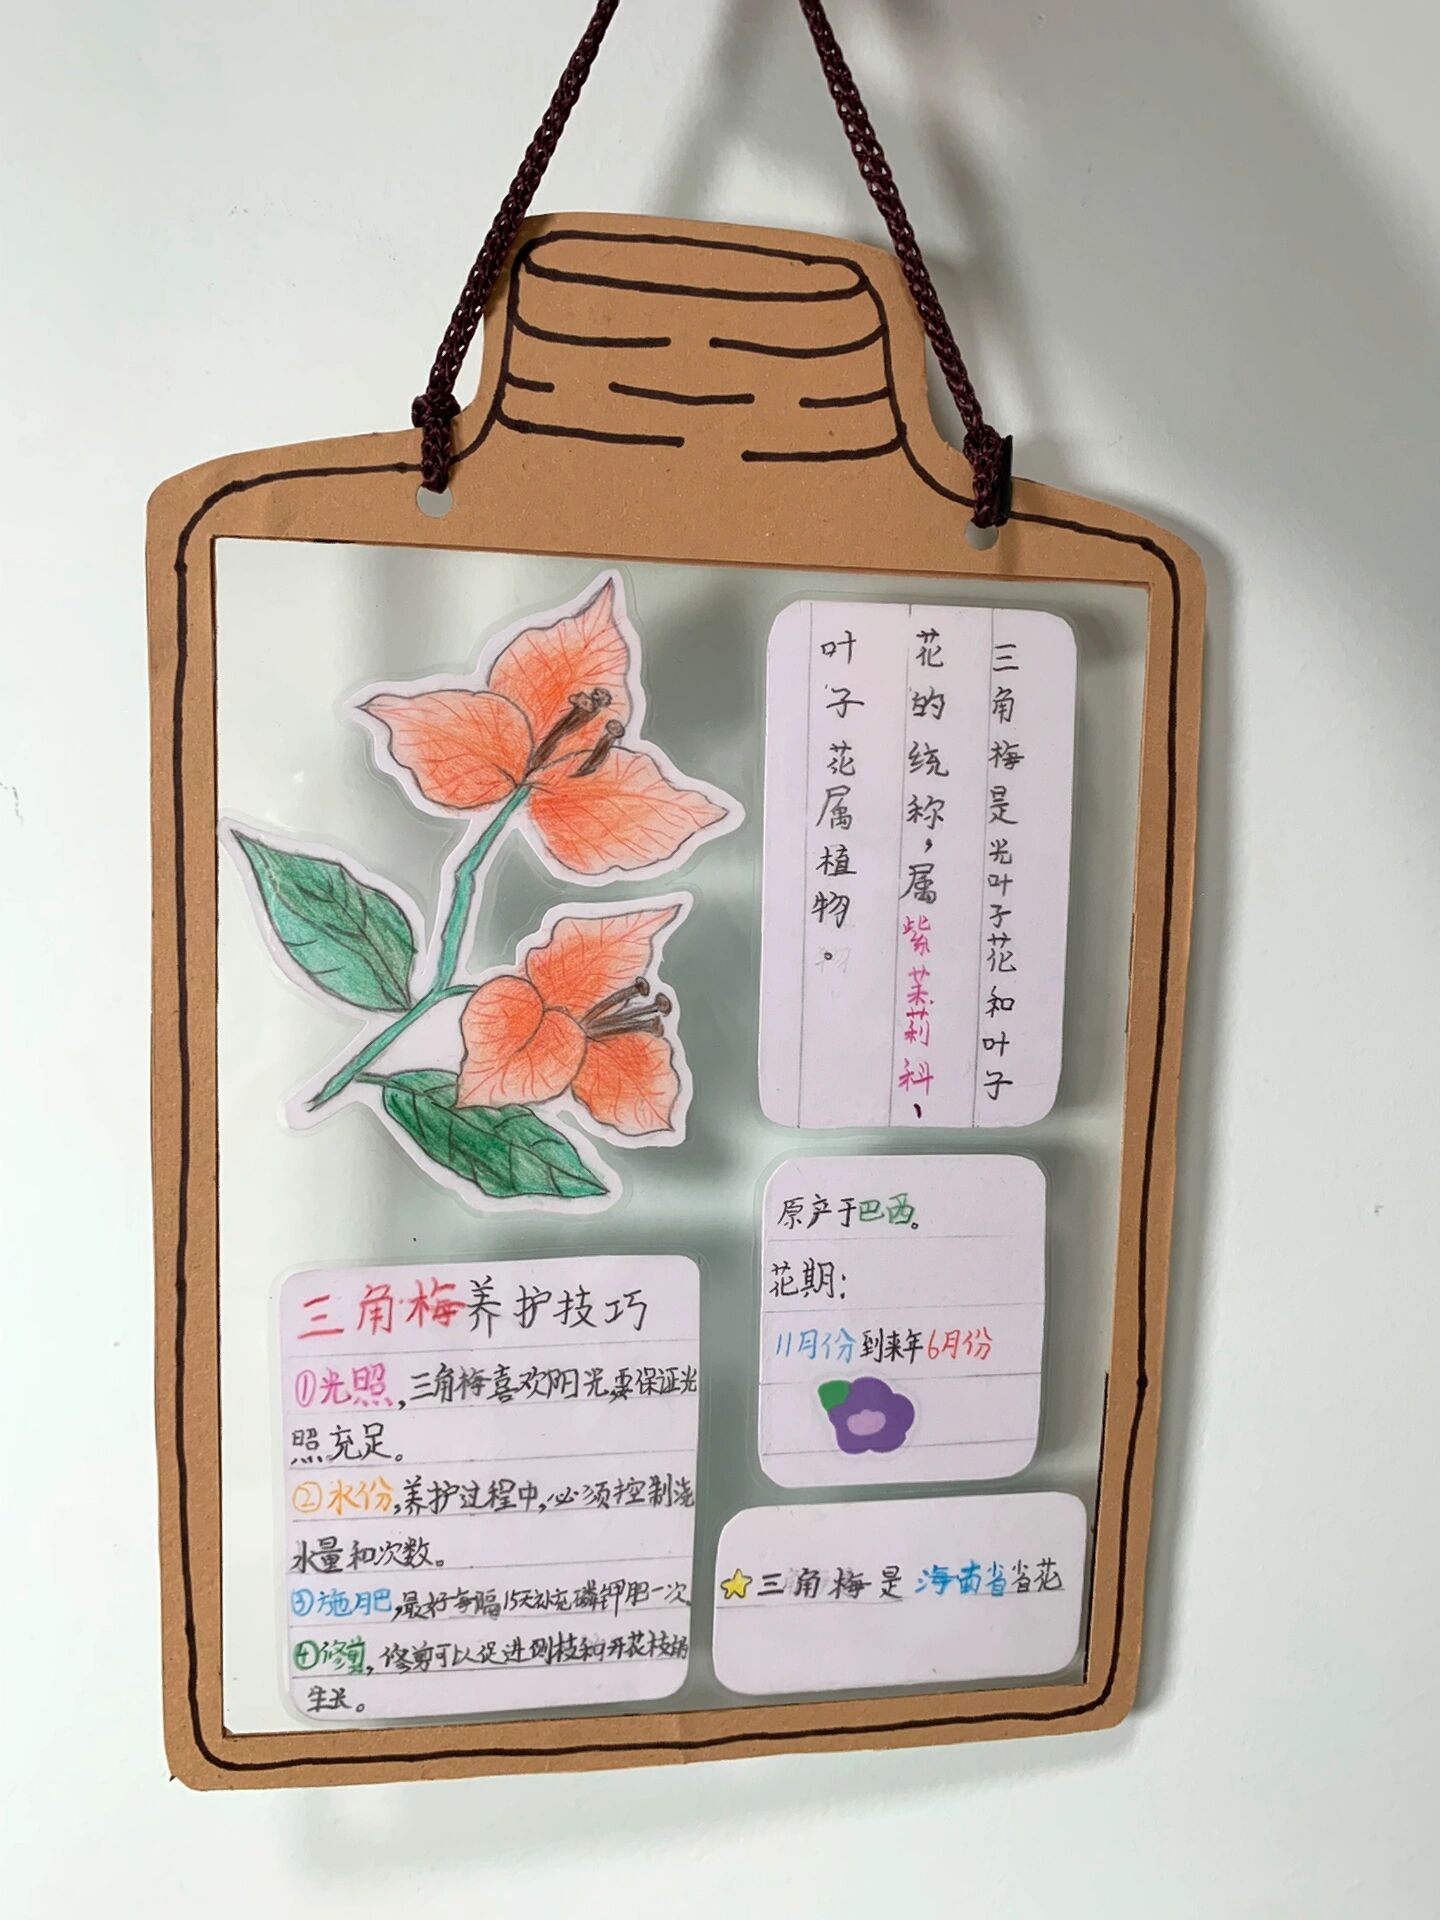 三角梅是光叶子花和叶子
花的统称，属紫茉莉科、
叶子花属植物。
原产于巴西。
花期：
11月份到来年6月份
三角梅是海南省省花
三角梅养护技巧
①光照，三角梅喜欢阳光，要保证光
照充足。
②水份，养护过程中，必须控制浇
水量和次数。
③施肥，最好每隔15天补充磷钾肥一次。
④修剪，修剪可以促进侧枝和开花枝的
生长。